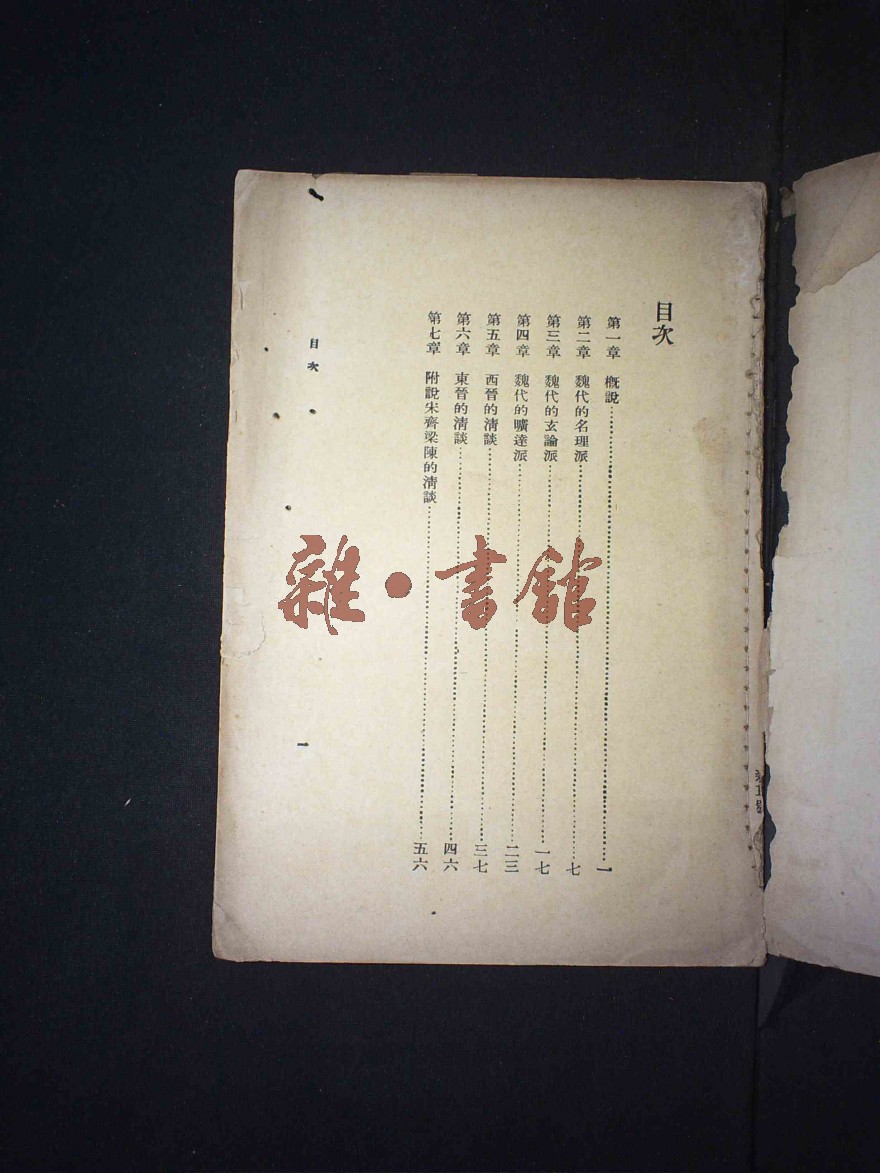 目次
第一章 概說……一
第二章 魏代的名理派……七
第三章 魏代的玄論派……一七
第四章 魏代的曠達派……二三
第五章 西晉的清談……三七
第六章 東晉的清談……四六
第七章 附說宋齊梁陳的清談……五六
目次
一
雜·書館